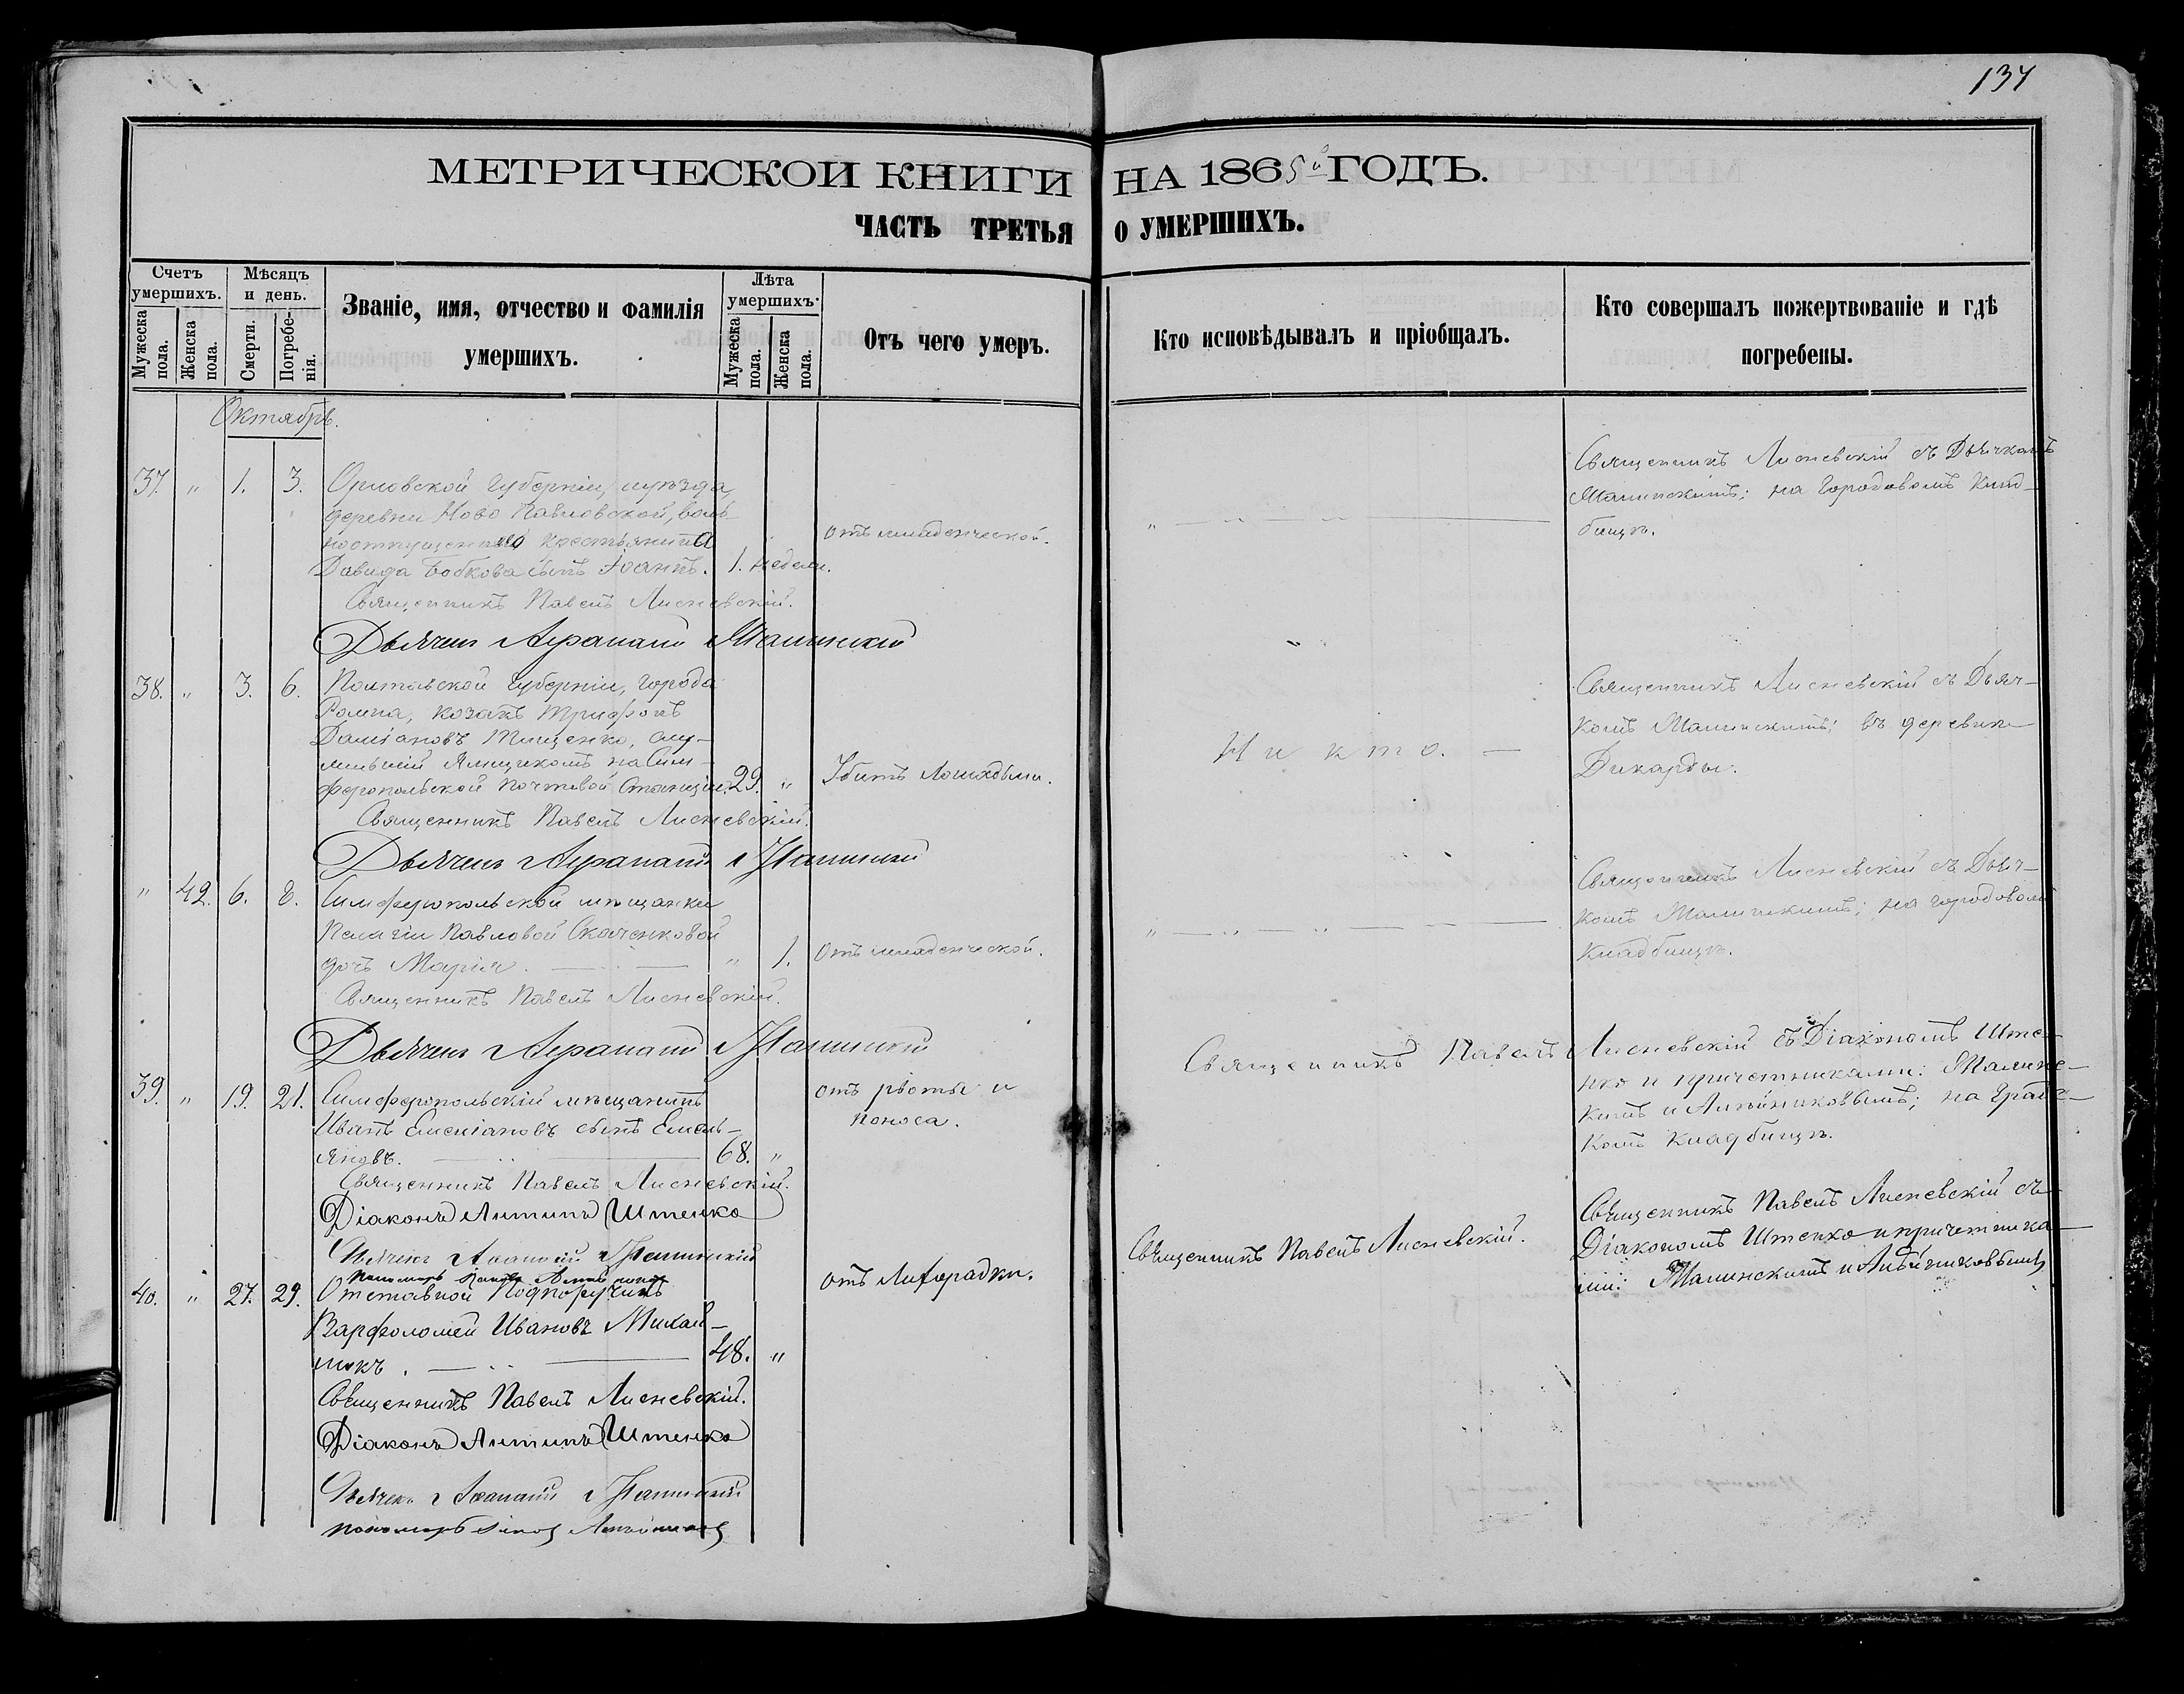 134
МЕТРИЧЕСКОЙ КНИГИ НА 1865й ГОДЪ.
ЧАСТЬ ТРЕТЬЯ О УМЕРШИХЪ.
Счетъ умершихъ.
Мужеска пола.
Женска пола.
Мѣсяцъ и день.
Смерти.
Погребенія.
Званіе, имя, отчество и фамилія
умершихъ.
Лѣта умершихъ.
Мужеска пола.
Женска пола.
Отъ чего умеръ.
Кто исповѣдывалъ и пріобщалъ.
Кто совершалъ пожертвованіе и гдѣ
погребены.
Октябрь.
37. " 1. 3. Орловской Губерніи, уѣзда,
деревни Ново Павловской, воль-
ноотпущеннаго крестьянина
Давида Бобкова сынъ Іоаннъ. 1. недели.
отъ младенческой.
Священникъ Лисневскій съ Дьячкомъ
Малинскимъ; на Городовомъ клад-
бищѣ.
Священникъ Павелъ Лисневскій.
Дьячекъ Малинскій
38. " 3. 6. Полтавской Губерніи, Города
Ромна, козакъ Трифонъ
Даміановъ Тищенко, слу-
жившій Ямщикомъ на Сим-
феропольской почтовой Станціи. 29. "
Убитъ Лошадьми.
Никто.
Священникъ Лисневскій съ Дьяч-
комъ Малинскимъ; въ деревни
Джарды.
Священникъ Павелъ Лисневскій.
Дьячекъ Малинскій
" 42. 6. 8. Симферопольской мѣщанки
Пелагіи Павловой Скаченковой
дочь Марія. " 1.
отъ младенческой.
Священникъ Лисневскій съ Дьяч-
комъ Малинскимъ; на городовомъ
кладбищѣ.
Священникъ Павелъ Лисневскій.
Дьячекъ Малинскій
39. " 19. 21. Симферопольскій мѣщанинъ
Иванъ Емеліановъ сынъ Емель-
яновъ. 68. "
отъ рвоты и
поноса.
Священникъ Павелъ Лисневскій съ Діакономъ Ште-
нко и причетниками: Малинс-
кимъ и на Градс-
комъ кладбищѣ.
Священникъ Павелъ Лисневскій.
Діаконъ Антипъ Штенко
Дьячекъ Малинскій
Пономарь
40. " 27. 29. Отставной Подпоручикъ
Варфоломей Ивановъ Михай-
люкъ. 48. "
отъ Лихорадки.
Священникъ Павелъ Лисневскій.
Священникъ Павелъ Лисневскій съ
Діакономъ Штенко и причетника-
ми: Малинскимъ и
Священникъ Павелъ Лисневскій.
Діаконъ Антипъ Штенко
Дьячекъ Малинскій
пономарь